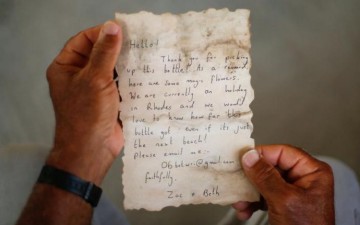 Hello!
Thank you for picking
up this bottle! As a reward
here are some magic flowers.
We are currently on holiday
in Rhodes and we would
love to know how far this
bottle got, even if its just
the next beach!
Please email me:-
@gmail.com
faithfully,
Zac & Beth